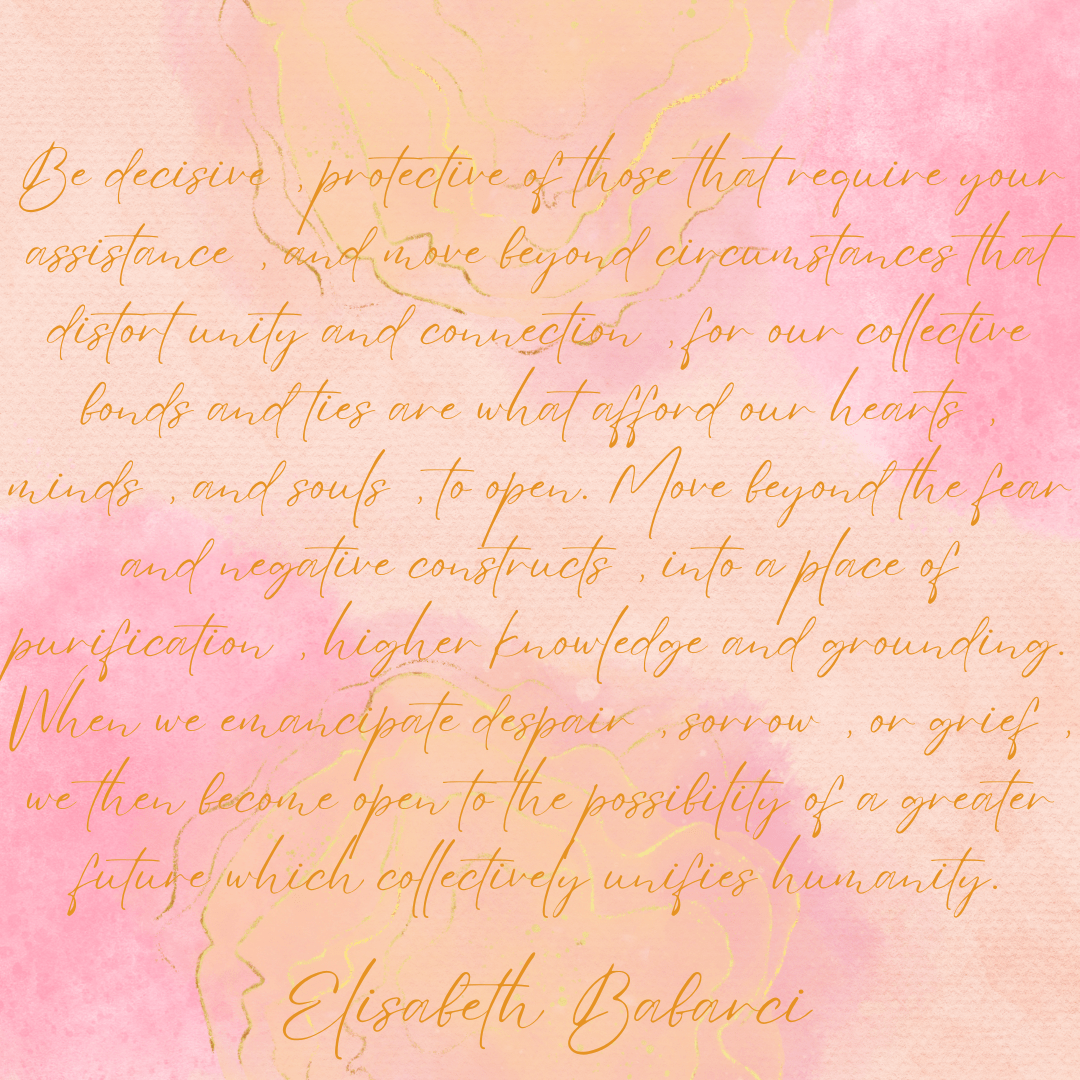 Be decisive , protective of those that require your
assistance , and move beyond circumstances that
distort unity and connection , for our collective
bonds and ties are what afford our hearts ,
minds , and souls , to open. Move beyond the fear
and negative constructs , into a place of
purification , higher knowledge and grounding.
When we emancipate despair , sorrow , or grief ,
we then become open to the possibility of a greater
future which collectively unifies humanity.
Elisabeth Babarci